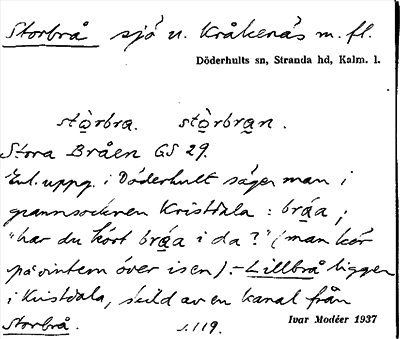 Storbrå sjö v. Kråkenäs m. fl.
Döderhults sn, Stranda hd, Kalm. l.
stò̱rbra. stò̱rbra̱n.
Stora Bråen GS 29.
Enl. uppg. i Döderhult säger man i
grannsocknen Kristdala : brá̱a ;
"har du kört brá̱a i da?" (man kör
på vintern över isen). – Lillbrå ligger
i Kristdala, skild av en kanal från
Storbrå. s. 119.
Ivar Modéer 1937